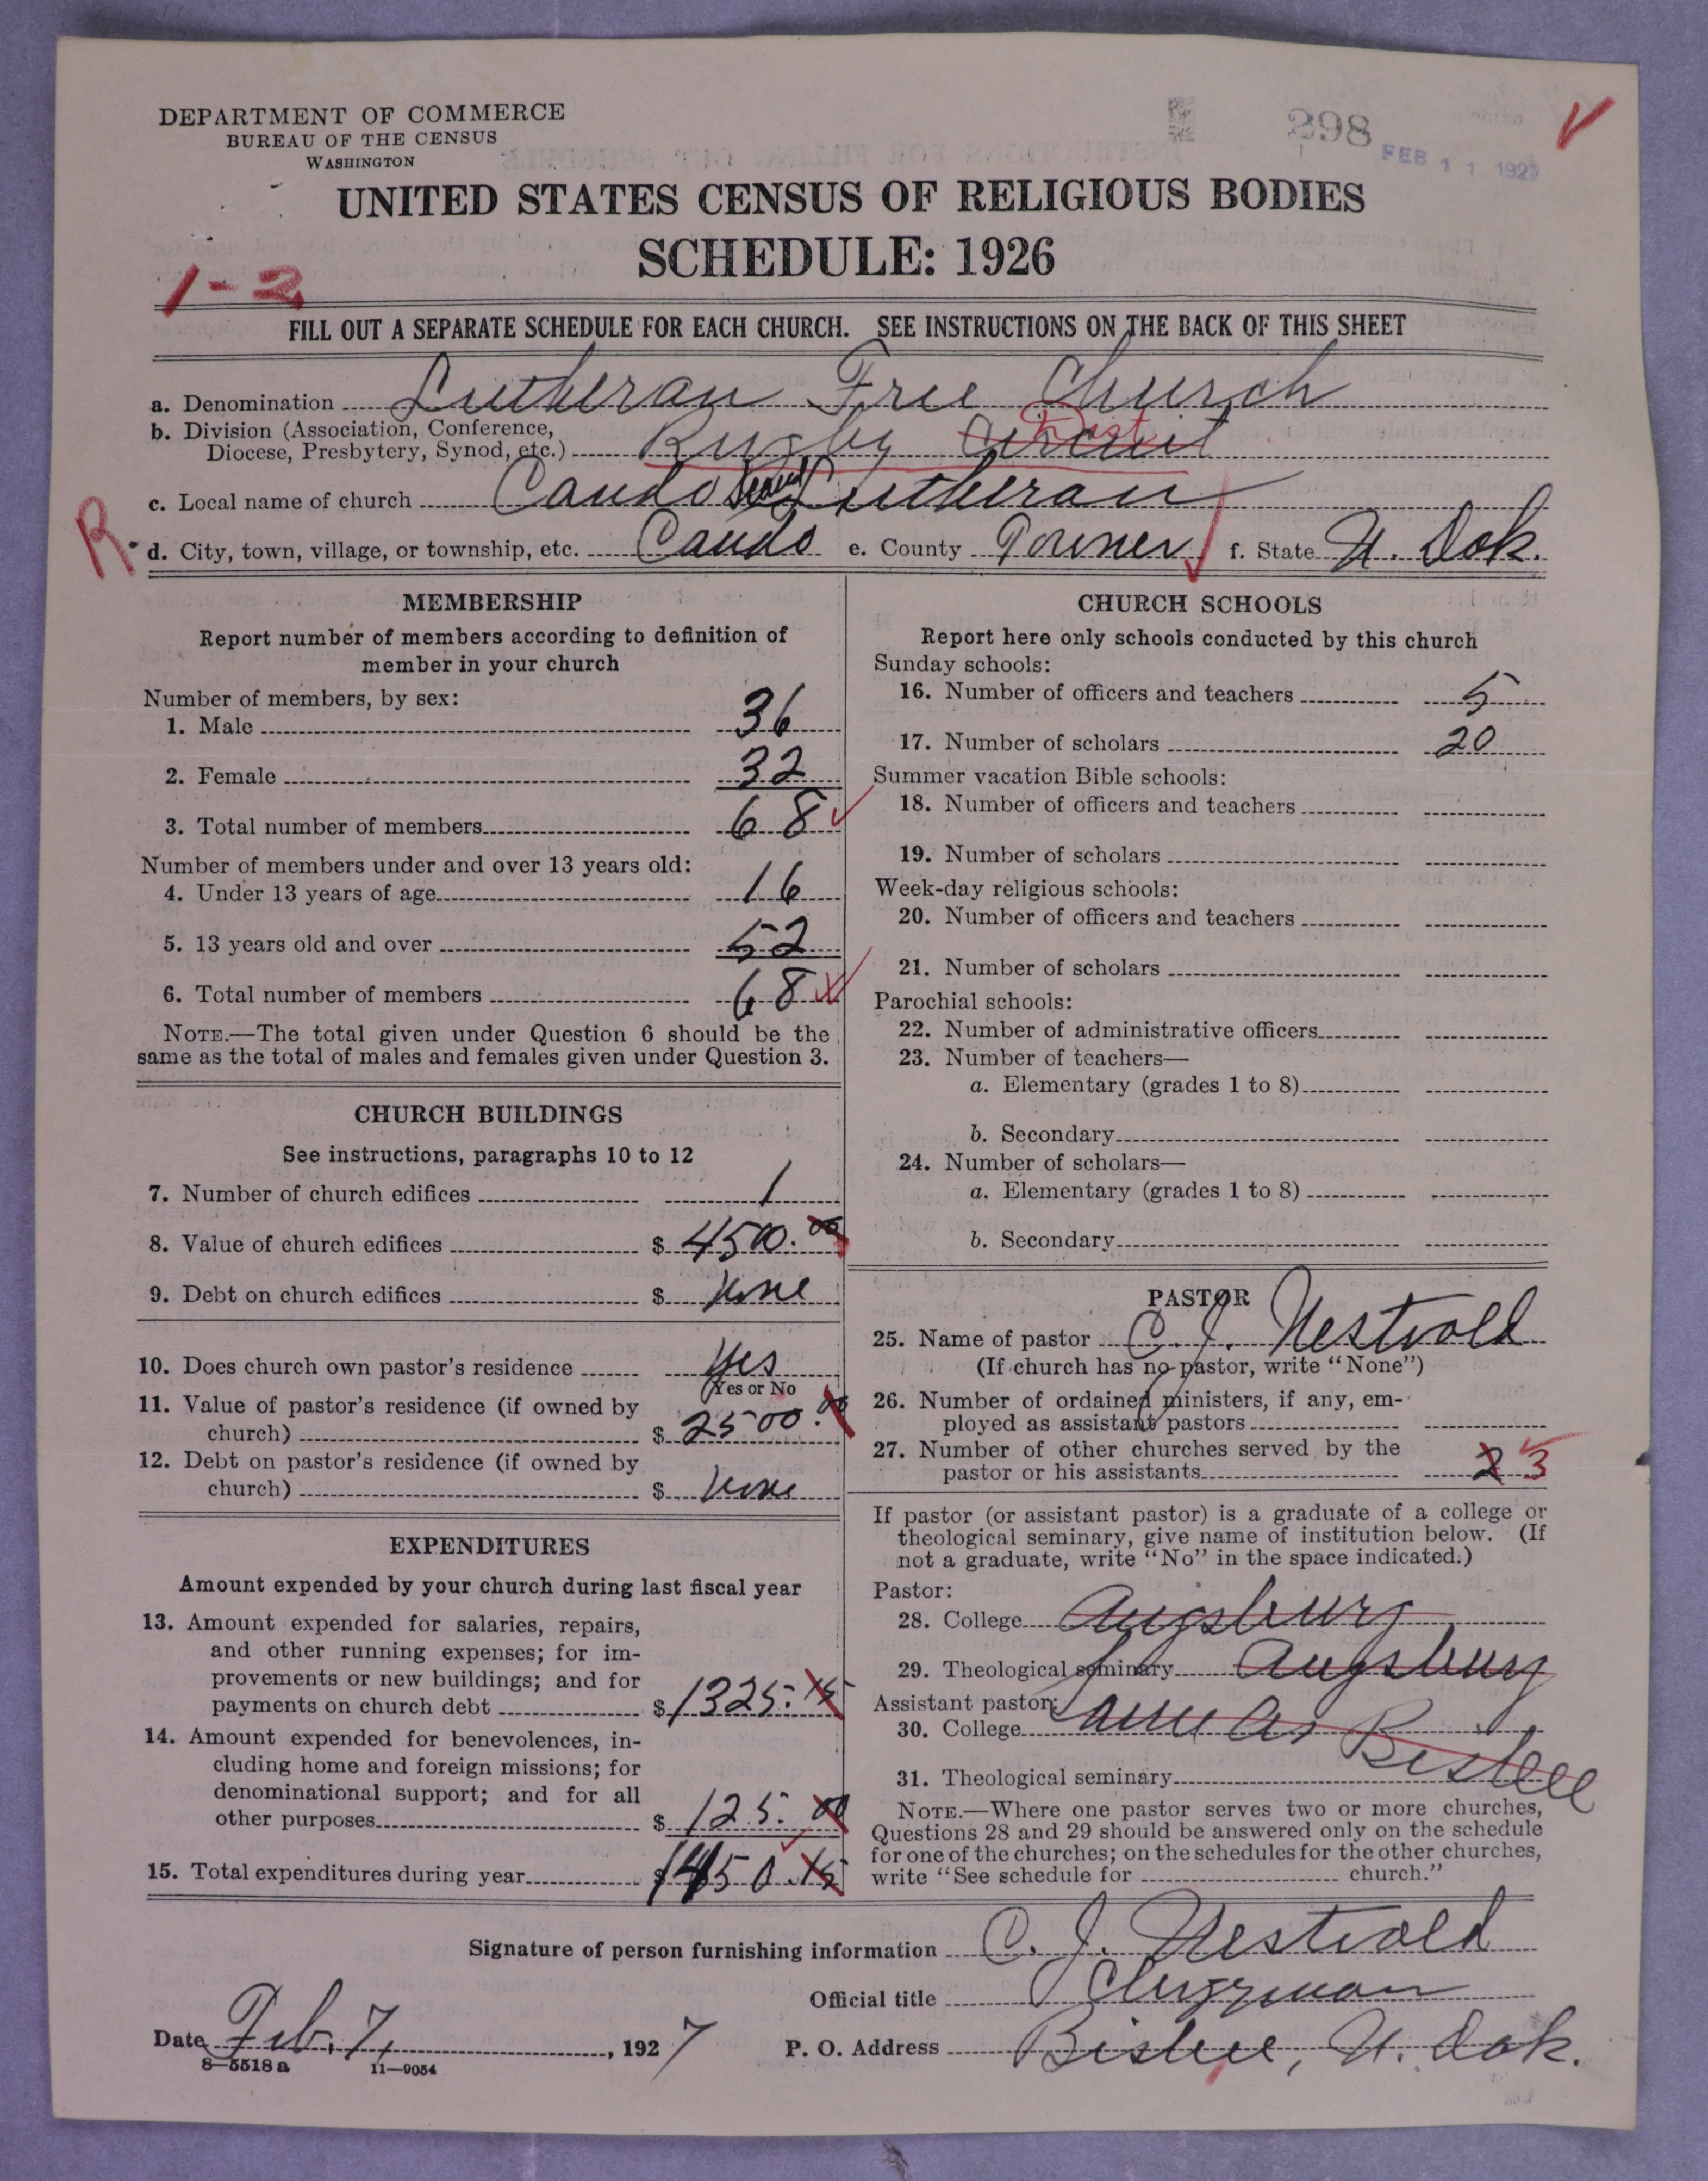 DEPARTMENT OF COMMERCE
BUREAU OF THE CENSUS
WASHINGTON
298
FEB 11 1927
UNITED STATES CENSUS OF RELIGIOUS BODIES
SCHEDULE: 1926
1-2
FILL OUT A SEPARATE SCHEDULE FOR EACH CHURCH. SEE INSTRUCTIONS ON THE BACK OF THIS SHEET
a. Denomination Lutheran Free Church
b. Division (Association, Conference, Diocese, Presbytery, Synod, etc.) Rugby Circuit Dist.
c. Local name of church Cando Lutheran
R d. City, town, village, or township, etc. Cando e. County Towner f. State N. Dak.
MEMBERSHIP
Report number of members according to definition of
member in your church
Number of members, by sex:
1. Male 36
2. Female 32
3. Total number of members 68
Number of members under and over 13 years old:
4. Under 13 years of age 16
5. 13 years old and over 52
6. Total number of members 68
NOTE.—The total given under Question 6 should be the
same as the total of males and females given under Question 3.
CHURCH BUILDINGS
See instructions, paragraphs 10 to 12
7. Number of church edifices 1
8. Value of church edifices $ 4500.00
9. Debt on church edifices $ None
10. Does church own pastor's residence Yes
(Yes or No
11. Value of pastor's residence (if owned by
church) $ 2500.00
12. Debt on pastor's residence (if owned by
church) $ None
EXPENDITURES
Amount expended by your church during last fiscal year
13. Amount expended for salaries, repairs,
and other running expenses; for im-
provements or new buildings; and for
payments on church debt $ 1325.15
14. Amount expended for benevolences, in-
cluding home and foreign missions; for
denominational support; and for all
other purposes $ 125.00
15. Total expenditures during year $ 1450.15
CHURCH SCHOOLS
Report here only schools conducted by this church
Sunday schools:
16. Number of officers and teachers 5
17. Number of scholars 20
Summer vacation Bible schools:
18. Number of officers and teachers
19. Number of scholars
Week-day religious schools:
20. Number of officers and teachers
21. Number of scholars
Parochial schools:
22. Number of administrative officers
23. Number of teachers—
a. Elementary (grades 1 to 8)
b. Secondary
24. Number of scholars—
a. Elementary (grades 1 to 8)
b. Secondary
PASTOR
25. Name of pastor C. J. Nestvold
(If church has no pastor, write "None")
26. Number of ordained ministers, if any, em-
ployed as assistant pastors
27. Number of other churches served by the
pastor or his assistants 2 3
If pastor (or assistant pastor) is a graduate of a college or
theological seminary, give name of institution below. (If
not a graduate, write "No" in the space indicated.)
Pastor:
28. College Augsburg
29. Theological seminary Augsburg
Assistant pastor:
30. College Same as Bisbee
31. Theological seminary
NOTE.—Where one pastor serves two or more churches,
Questions 28 and 29 should be answered only on the schedule
for one of the churches; on the schedules for the other churches,
write "See schedule for church."
Signature of person furnishing information C. J. Nestvold
Official title Clergyman
Date Feb. 7, 1927 P. O. Address Bisbee, N. Dak.
8—5518 a 11—9054